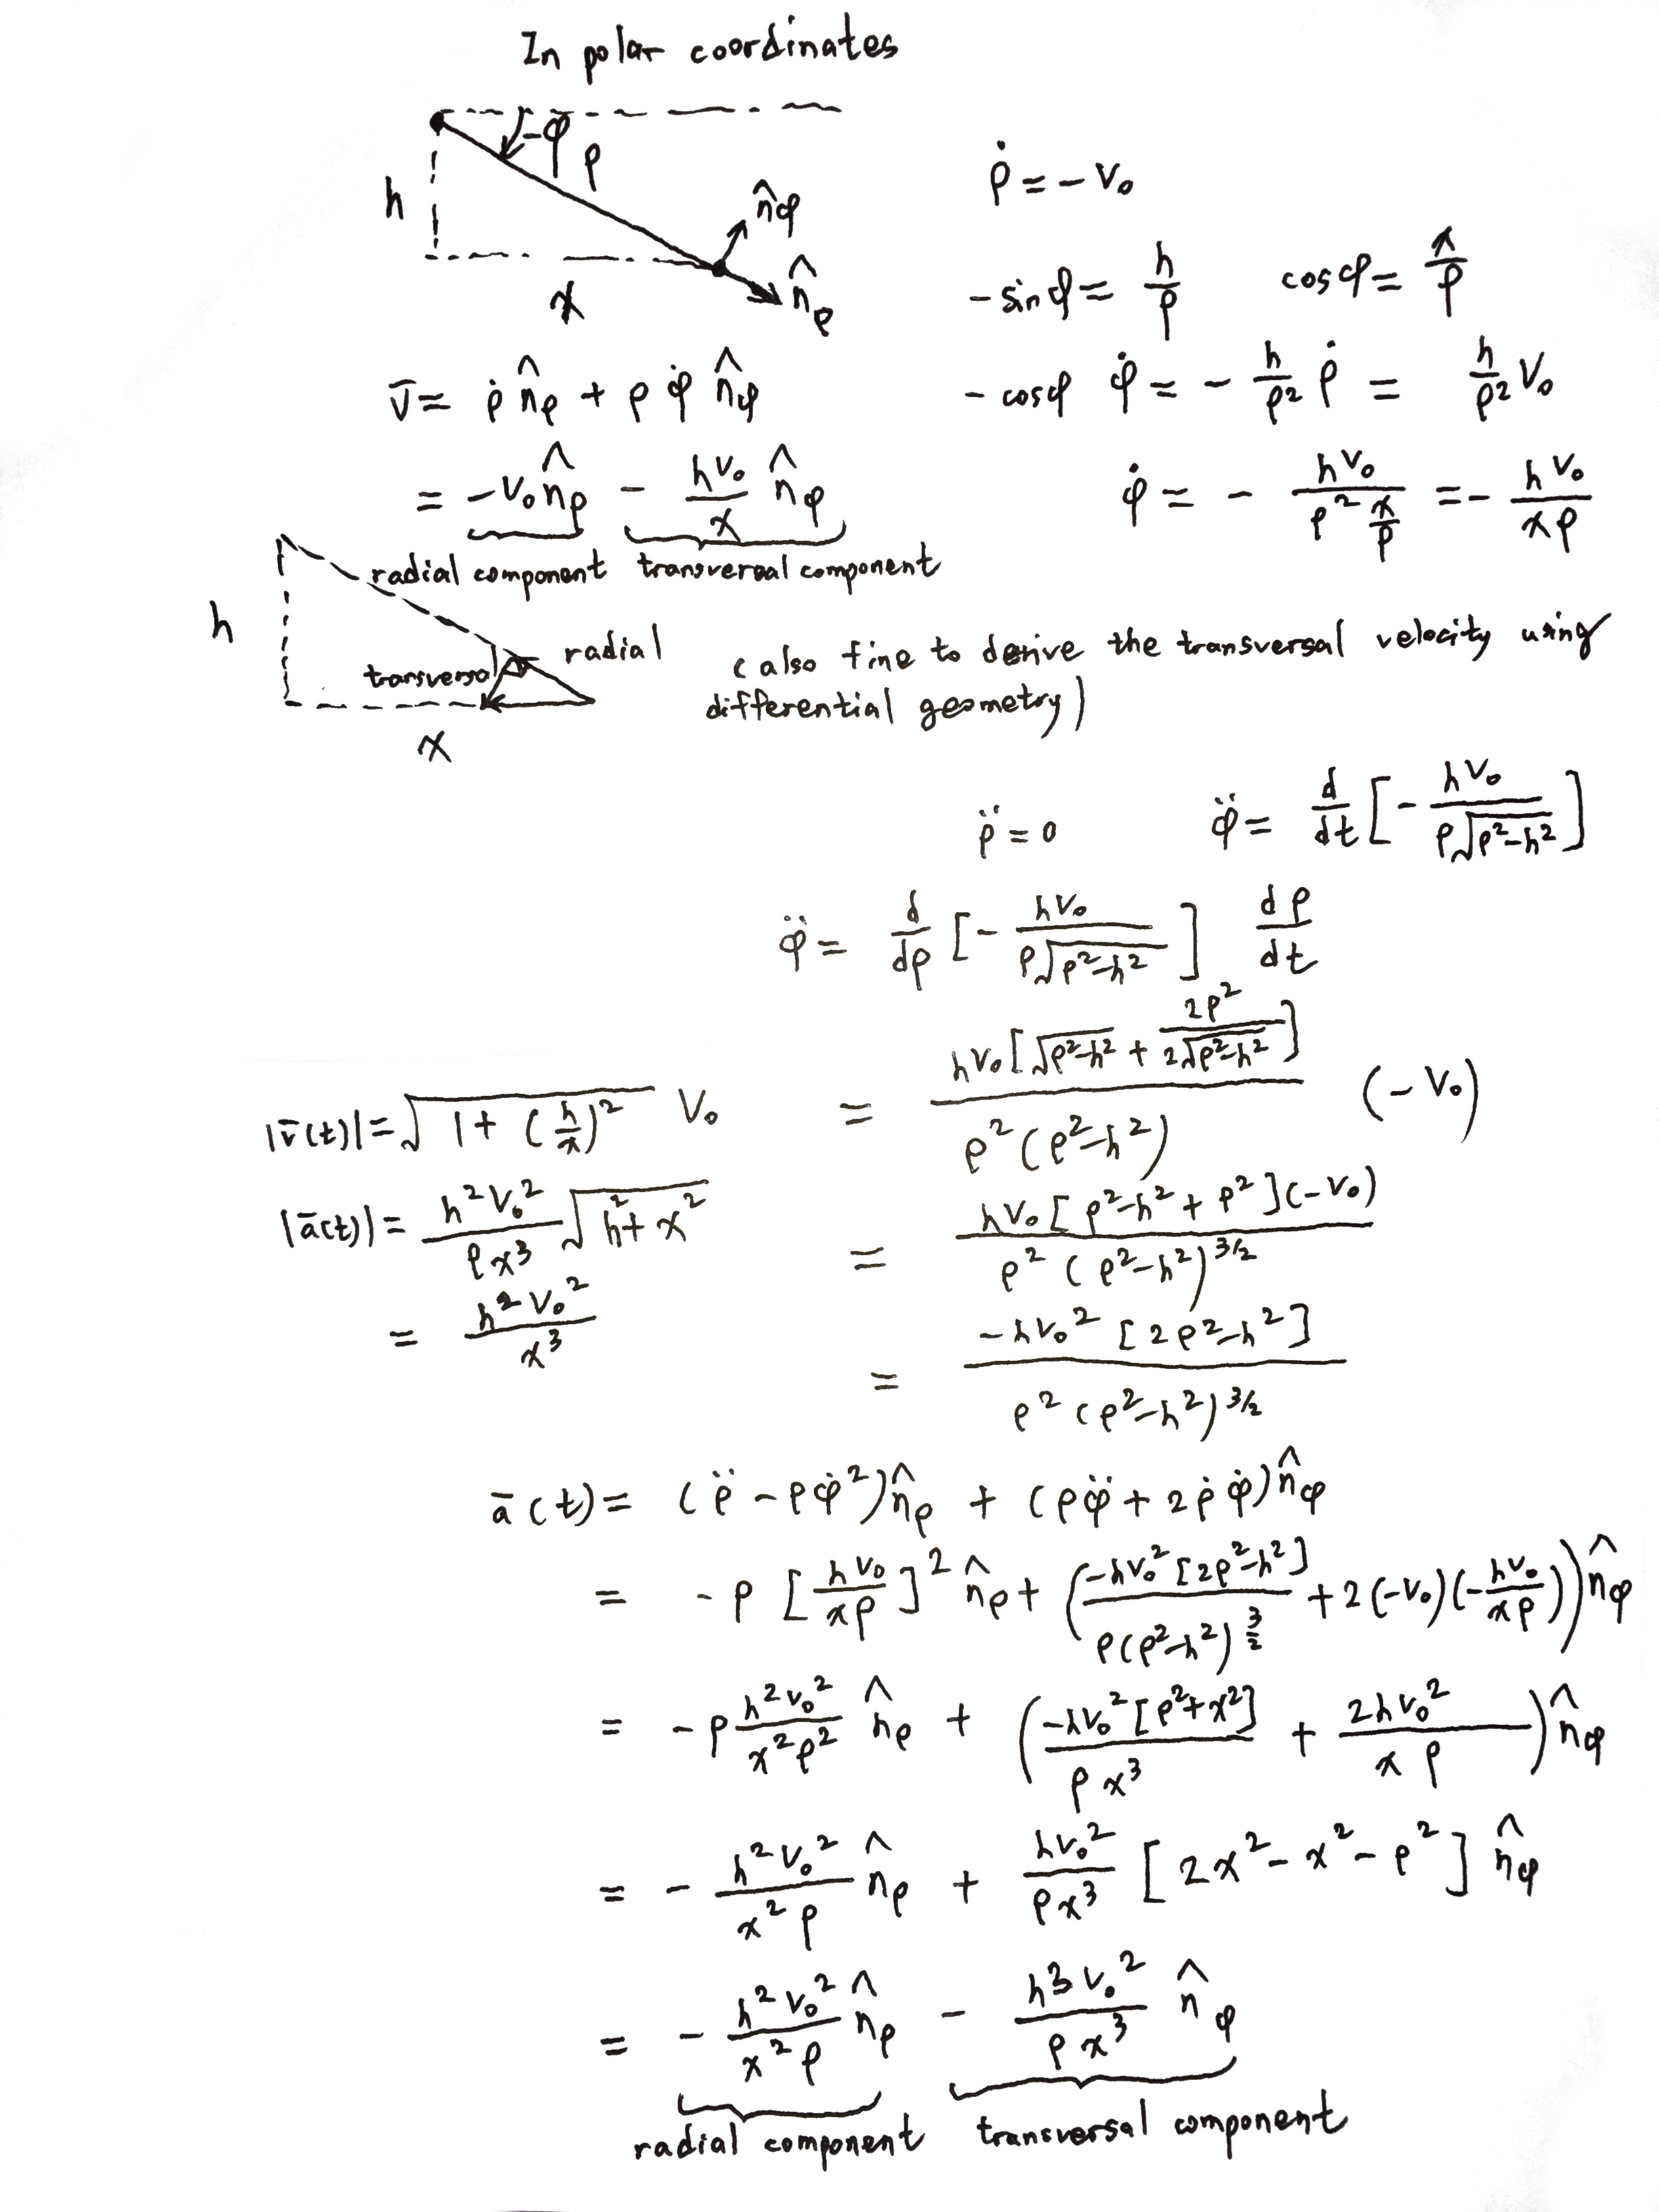 In polar coordinates
-φ
ρ
h
n̂φ
n̂ρ
x
ρ̇ = -V₀
-sinφ = h/ρ   cosφ = x/ρ
v̄ = ρ̇ n̂ρ + ρ φ̇ n̂φ
-cosφ φ̇ = - h/ρ² ρ̇ = h/ρ² V₀
= -V₀ n̂ρ - hV₀/x n̂φ
φ̇ = - hV₀/(ρ² x/ρ) = - hV₀/(xρ)
radial component transversal component
h
radial
transversal
x
(also fine to derive the transversal velocity using
differential geometry)
ρ̈ = 0   φ̈ = d/dt [- hV₀/(ρ√(ρ²-h²))]
φ̈ = d/dρ [- hV₀/(ρ√(ρ²-h²))] dρ/dt
= hV₀[√(ρ²-h²) + 2ρ²/(2√(ρ²-h²))]/(ρ²(ρ²-h²)) (-V₀)
= hV₀[ρ²-h²+ρ²](-V₀)/(ρ²(ρ²-h²)^3/2)
= -hV₀²[2ρ²-h²]/(ρ²(ρ²-h²)^3/2)
|v̄(t)| = √(1+(h/x)²) V₀
|ā(t)| = h²V₀²/(ρx³) √(h²+x²)
= h²V₀²/x³
ā(t) = (ρ̈ - ρφ̇²)n̂ρ + (ρφ̈ + 2ρ̇φ̇)n̂φ
= -ρ [hV₀/(xρ)]² n̂ρ + (-hV₀²[2ρ²-h²]/(ρ(ρ²-h²)^3/2) + 2(-V₀)(-hV₀/(xρ))) n̂φ
= -ρ h²V₀²/(x²ρ²) n̂ρ + (-hV₀²[ρ²+x²]/(ρx³) + 2hV₀²/(xρ)) n̂φ
= - h²V₀²/(x²ρ) n̂ρ + hV₀²/(ρx³) [2x²-x²-ρ²] n̂φ
= - h²V₀²/(x²ρ) n̂ρ - h³V₀²/(ρx³) n̂φ
radial component transversal component